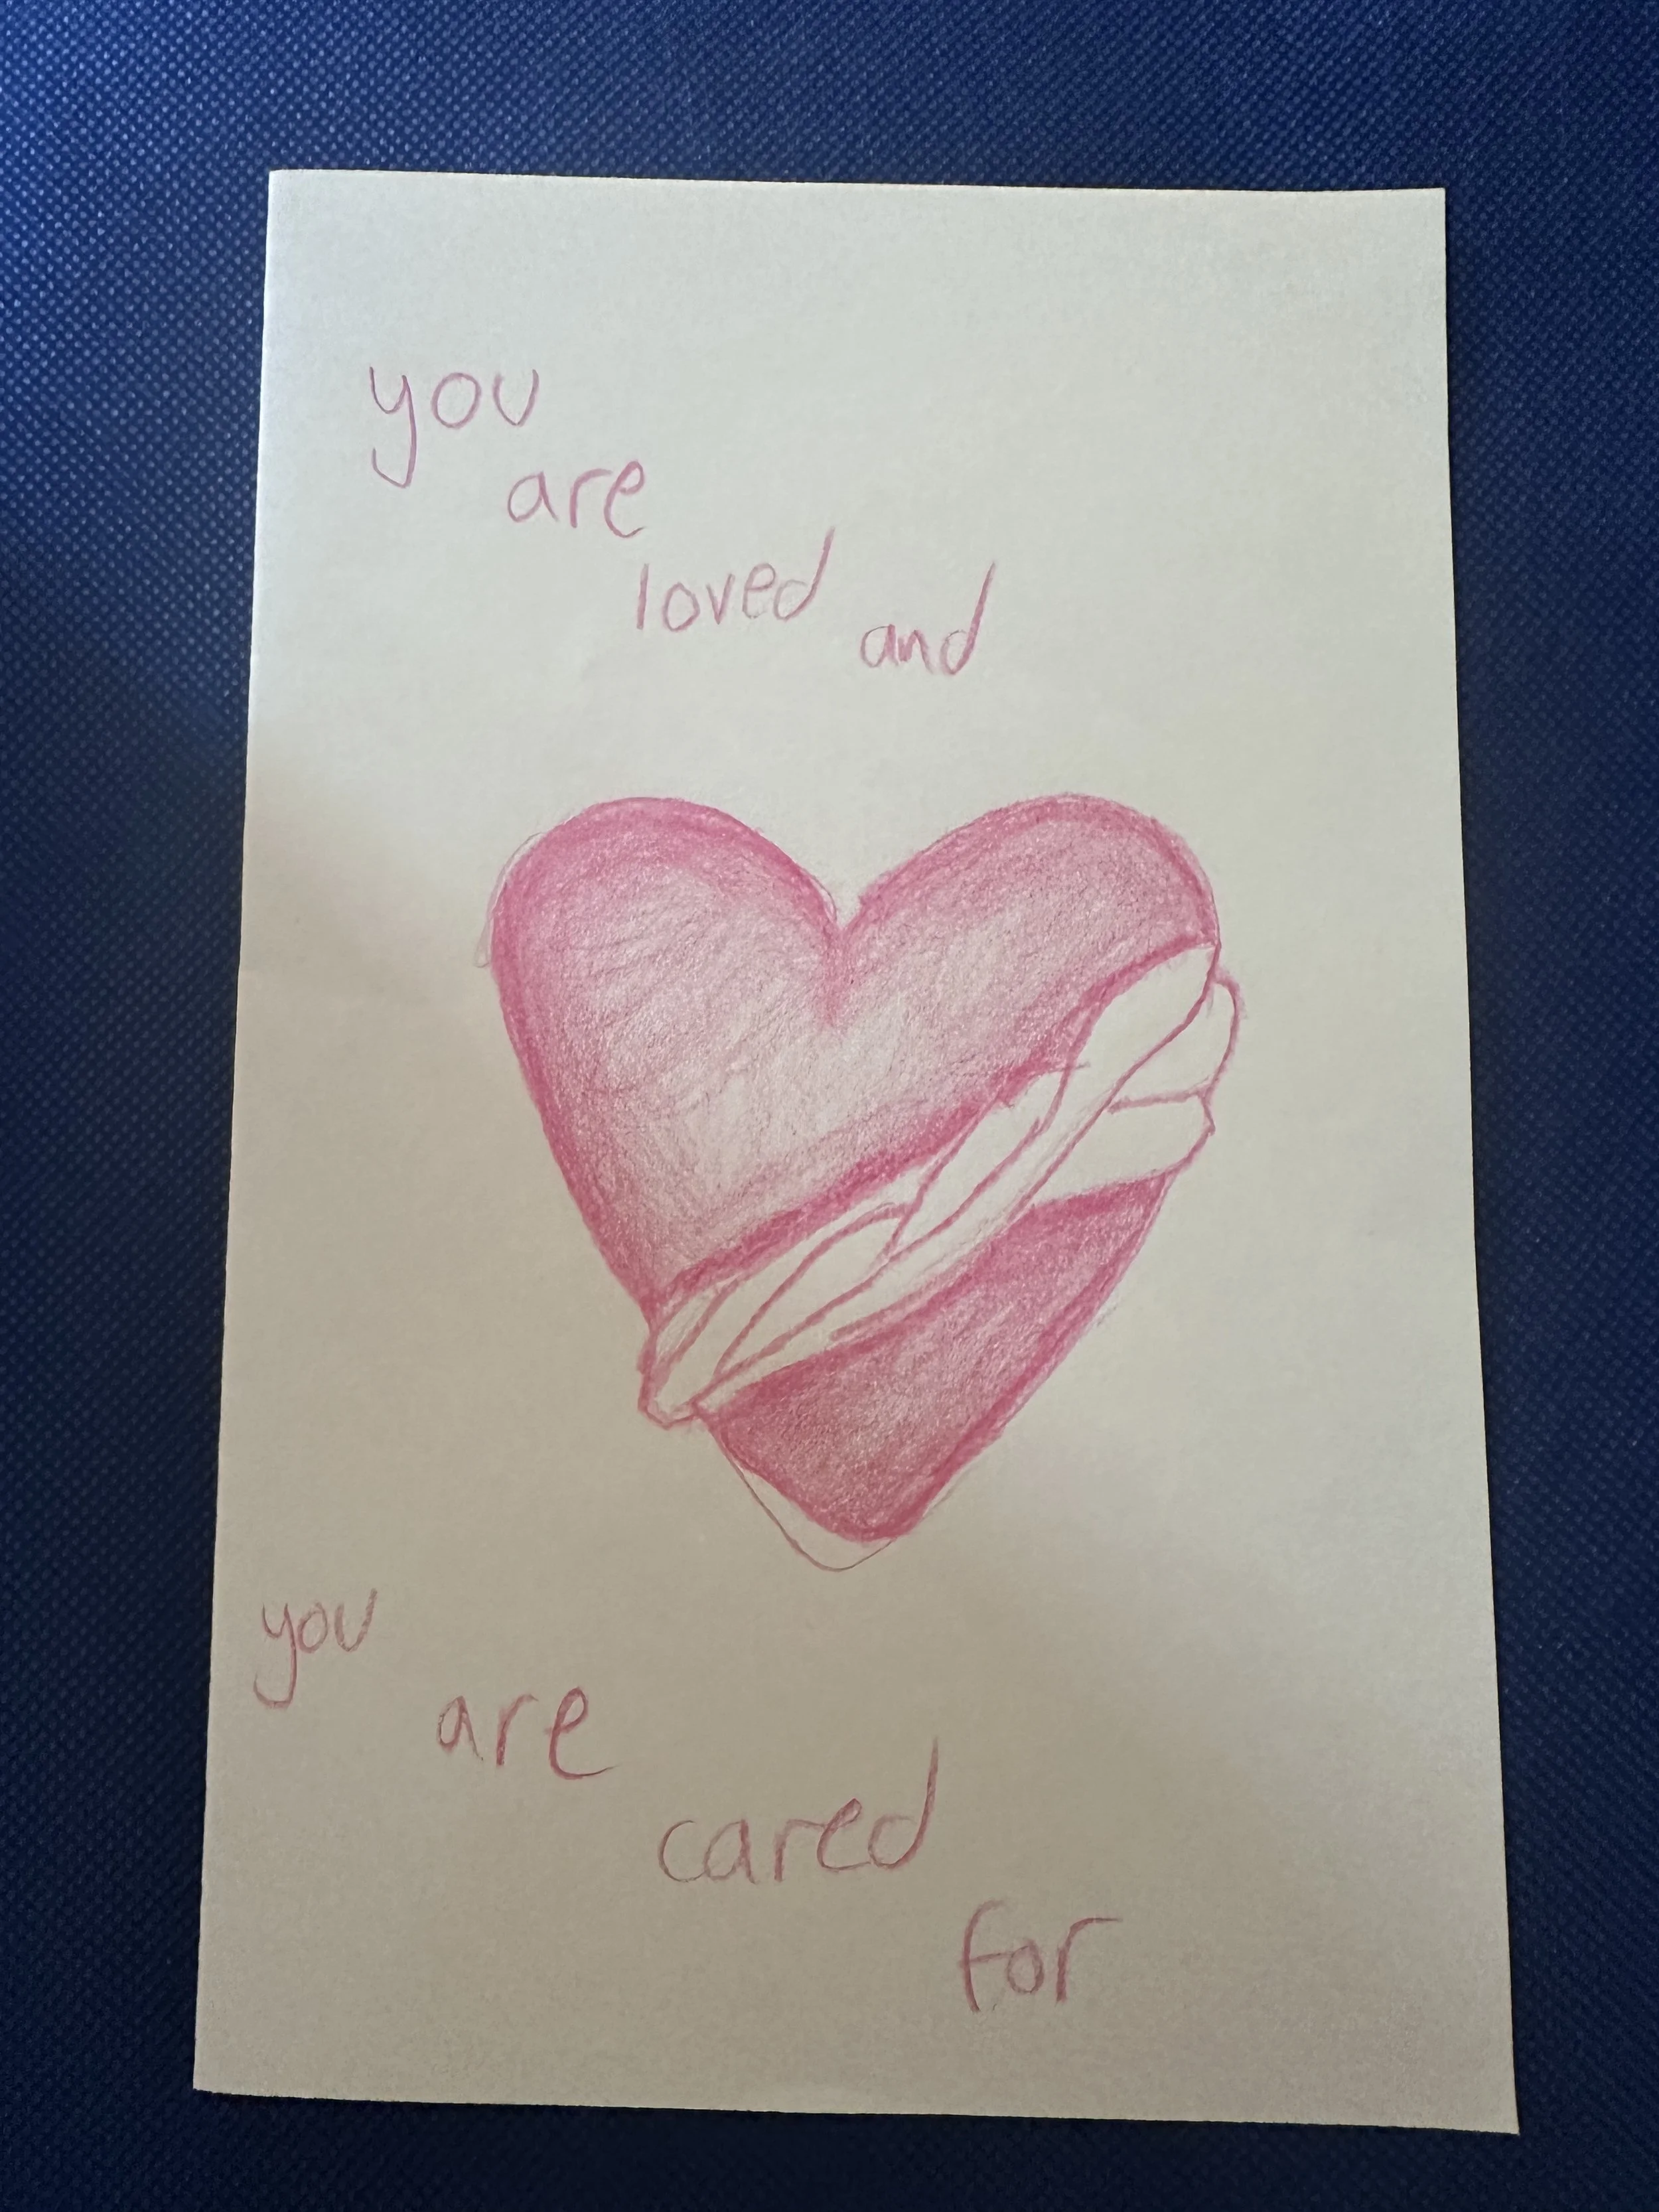 you
are
loved and
you
are
cared
for